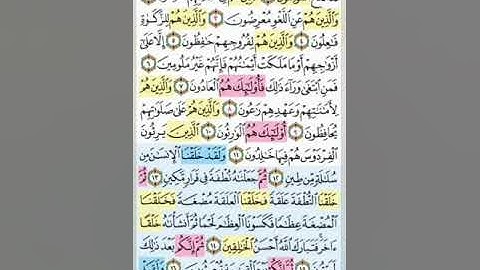 وَٱلَّذِينَ هُمْ عَنِ ٱللَّغْوِ مُعْرِضُونَ ٣ وَٱلَّذِينَ هُمْ لِلزَّكَوٰةِ
فَٰعِلُونَ ٤ وَٱلَّذِينَ هُمْ لِفُرُوجِهِمْ حَٰفِظُونَ ٥ إِلَّا عَلَىٰٓ
أَزْوَٰجِهِمْ أَوْ مَا مَلَكَتْ أَيْمَٰنُهُمْ فَإِنَّهُمْ غَيْرُ مَلُومِينَ ٦
فَمَنِ ٱبْتَغَىٰ وَرَآءَ ذَٰلِكَ فَأُو۟لَٰٓئِكَ هُمُ ٱلْعَادُونَ ٧ وَٱلَّذِينَ هُمْ
لِأَمَٰنَٰتِهِمْ وَعَهْدِهِمْ رَٰعُونَ ٨ وَٱلَّذِينَ هُمْ عَلَىٰ صَلَوَٰتِهِمْ
يُحَافِظُونَ ٩ أُو۟لَٰٓئِكَ هُمُ ٱلْوَٰرِثُونَ ١٠ ٱلَّذِينَ يَرِثُونَ
ٱلْفِرْدَوْسَ هُمْ فِيهَا خَٰلِدُونَ ١١ وَلَقَدْ خَلَقْنَا ٱلْإِنسَٰنَ مِن
سُلَٰلَةٍ مِّن طِينٍ ١٢ ثُمَّ جَعَلْنَٰهُ نُطْفَةً فِى قَرَارٍ مَّكِينٍ ١٣ ثُمَّ
خَلَقْنَا ٱلنُّطْفَةَ عَلَقَةً فَخَلَقْنَا ٱلْعَلَقَةَ مُضْغَةً فَخَلَقْنَا
ٱلْمُضْغَةَ عِظَٰمًا فَكَسَوْنَا ٱلْعِظَٰمَ لَحْمًا ثُمَّ أَنشَأْنَٰهُ خَلْقًا
ءَاخَرَ فَتَبَارَكَ ٱللَّهُ أَحْسَنُ ٱلْخَٰلِقِينَ ١٤ ثُمَّ إِنَّكُم بَعْدَ ذَٰلِكَ